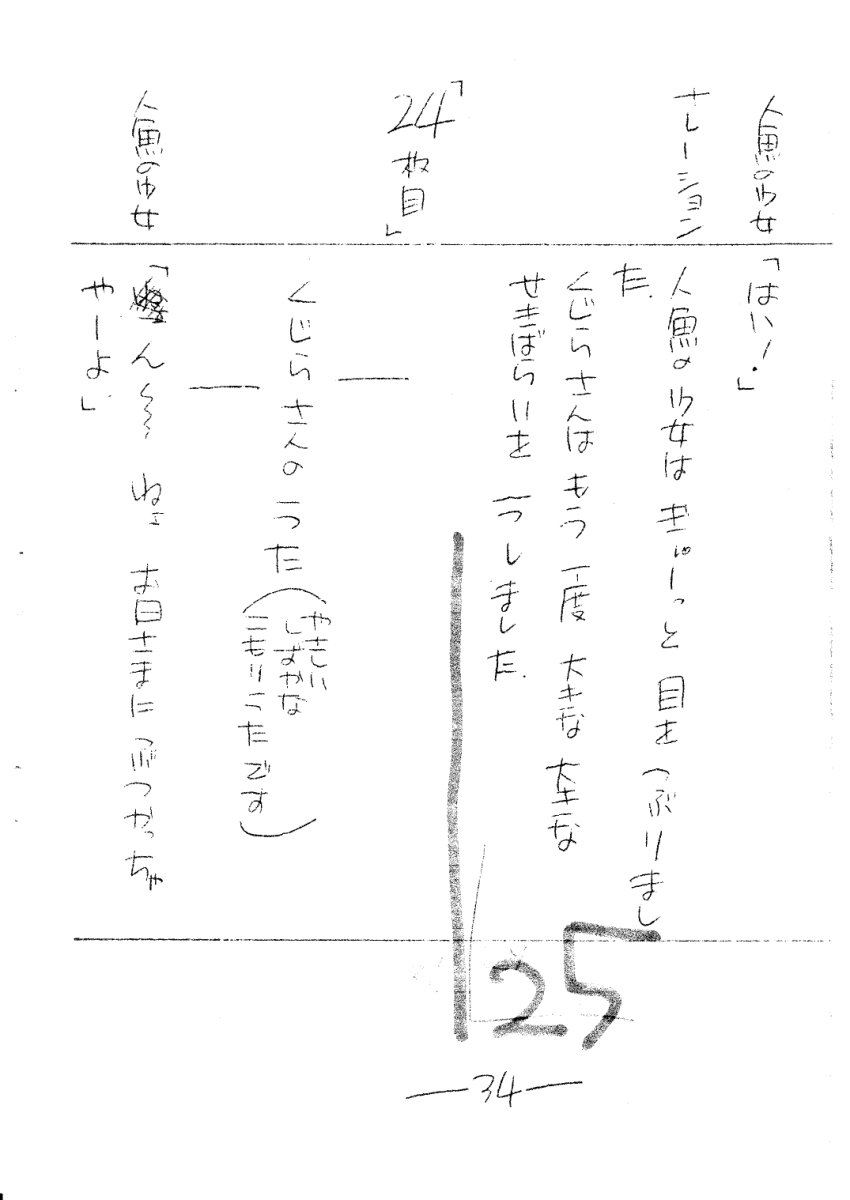 人魚の少女「はい！」
ナレーション 人魚の少女は ぎゅーっと 目を つぶりまし
た.
くじらさんは もう 一度 大きな 大きな
せきばらいを 一つ しました.
「24枚目」
くじらさんの うた(やさしい
しずかな
こもりうたです)
人魚の少女「ん〜 ねェ お日さまに ぶつかっちゃ
やーよ」
25
—34—